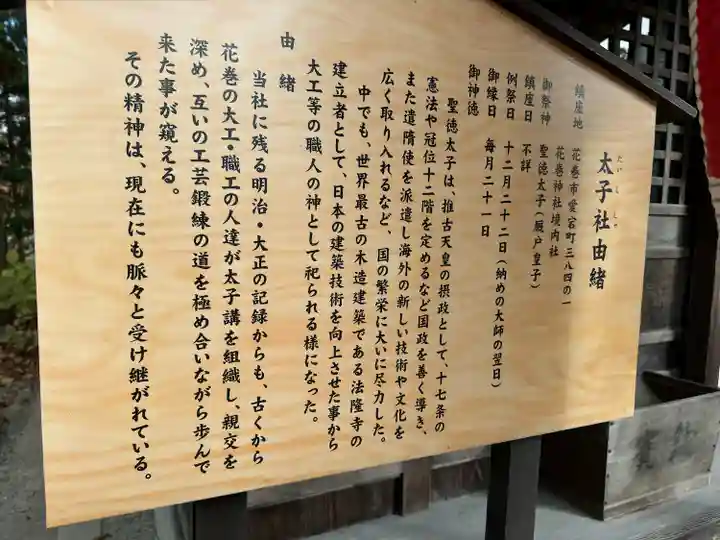 太子社由緒
たいししゃ
鎮座地　花巻市愛宕町三八四の一
花巻神社境内社
御祭神　聖徳太子(厩戸皇子)
鎮座日　不詳
例祭日　十二月二十二日(納めの大師の翌日)
御縁日　毎月二十一日
御神徳
聖徳太子は、推古天皇の摂政として、十七条の
憲法や冠位十二階を定めるなど国政を善く導き、
また遣隋使を派遣し海外の新しい技術や文化を
広く取り入れるなど、国の繁栄に大いに尽力した。
中でも、世界最古の木造建築である法隆寺の
建立者として、日本の建築技術を向上させた事から
大工等の職人の神として祀られる様になった。
由緒
当社に残る明治・大正の記録からも、古くから
花巻の大工・職工の人達が太子講を組織し、親交を
深め、互いの工芸鍛練の道を極め合いながら歩んで
来た事が窺える。
その精神は、現在にも脈々と受け継がれている。